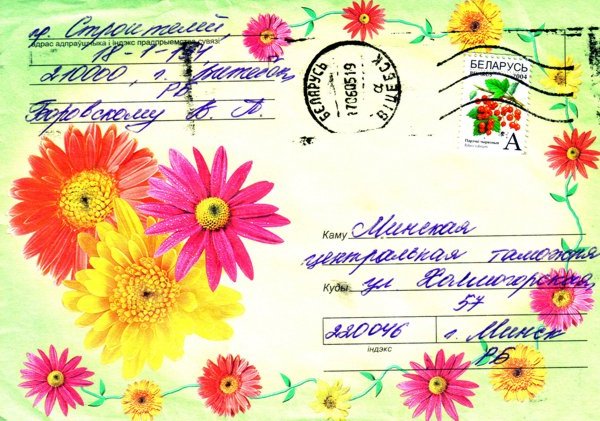 пр. Строителей,
адрас адпраўшчыка і індэкс прадпрыемства сувязі
18-1-194,
210000, г. Витебск,
РБ
Боровскому В. П.
БЕЛАРУСЬ
17060519
ВІЦЕБСК
БЕЛАРУСЬ
2004
Парэчкі чырвоныя
A
Каму Минская
централская таможня
Куды ул Холмогорская,
57
220046 г. Минск
індэкс
РБ